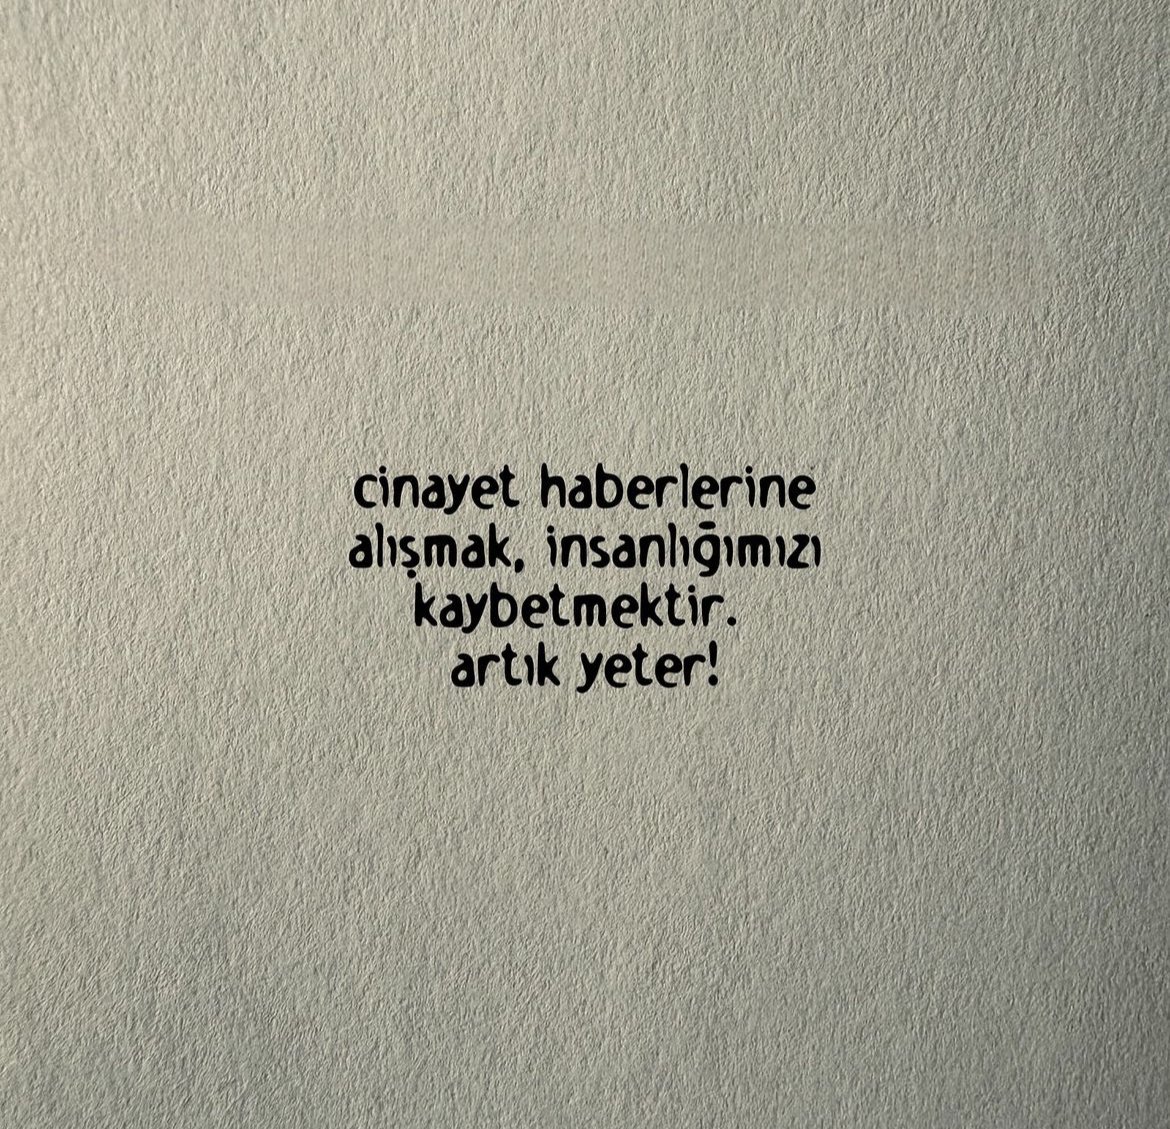 cinayet haberlerine
alışmak, insanlığımızı
kaybetmektir.
artık yeter!